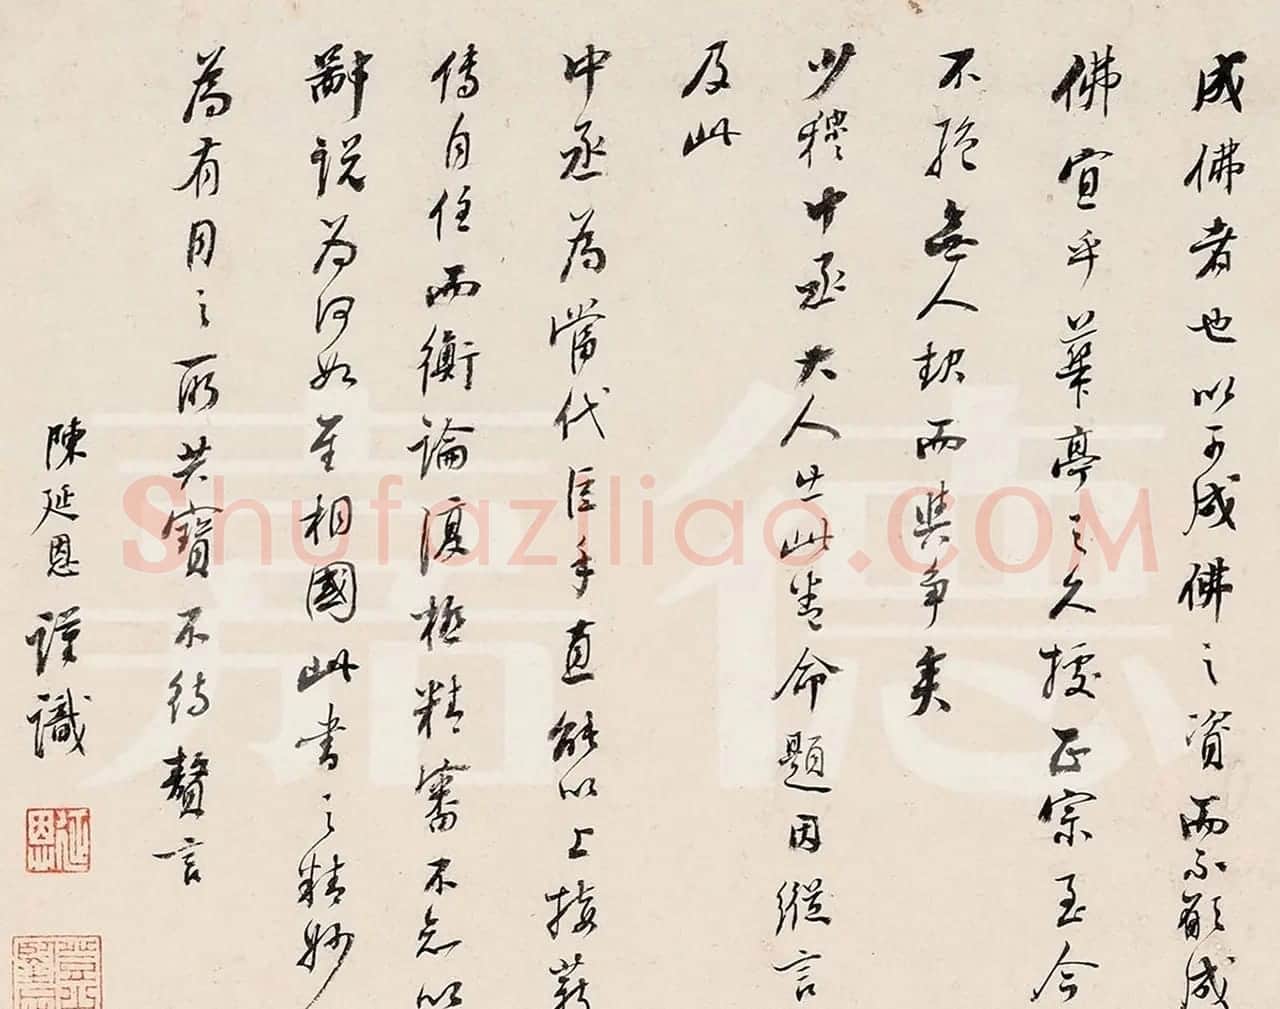 成佛者也以可成佛之資而不願成
佛宜乎華亭之久據正宗至今
不絕無人起而與爭矣
少穆中丞大人出此卷命題因縱言
及此
中丞為當代臣手直能以上接薪
傳自任而衡論復極精審不急以
辭說为何如至相國此書之精妙
為有目之所共寶不待贅言
陳延恩謹識
延恩
嘉德
Shufaziliao.COM